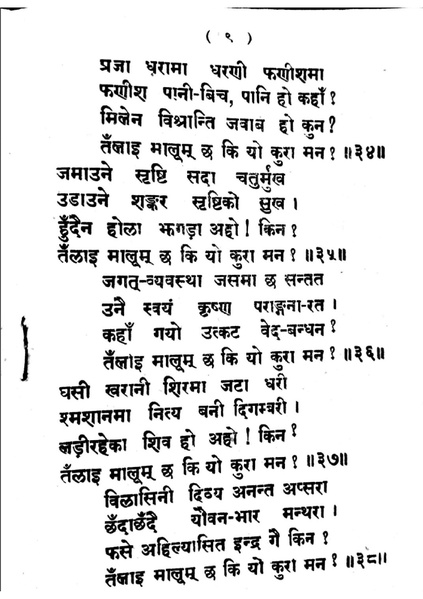 ( ९ )
प्रजा धरामा धरणी फणीशमा
फणीश पानी-बिच, पानि हो कहाँ ?
मिलेन विश्रान्ति जवाब हो कुन ?
तँलाइ मालूम् छ कि यो कुरा मन ? ॥३४॥
जमाउने सृष्टि सदा चतुर्मुख
उडाउने शङ्कर सृष्टिको सुख ।
हुँदैन होला झगडा अहो ! किन ?
तँलाइ मालूम् छ कि यो कुरा मन ? ॥३५॥
जगत्-व्यवस्था जसमा छ सन्तत
उनै स्वयं कृष्ण पराङ्गना-रत ।
कहाँ गयो उत्कट वेद-बन्धन ?
तँलाइ मालूम् छ कि यो कुरा मन ? ॥३६॥
घसी खरानी शिरमा जटा धरी
श्मशानमा नित्य बनी दिगम्बरी ।
लडीरहेका शिव हो अहो ! किन ?
तँलाइ मालूम् छ कि यो कुरा मन ? ॥३७॥
विलासिनी दिव्य अनन्त अप्सरा
छँदाछँदै यौवन-भार मन्थरा ।
फसे अहिल्यासित इन्द्र गै किन ?
तँलाइ मालूम् छ कि यो कुरा मन ? ॥३८॥